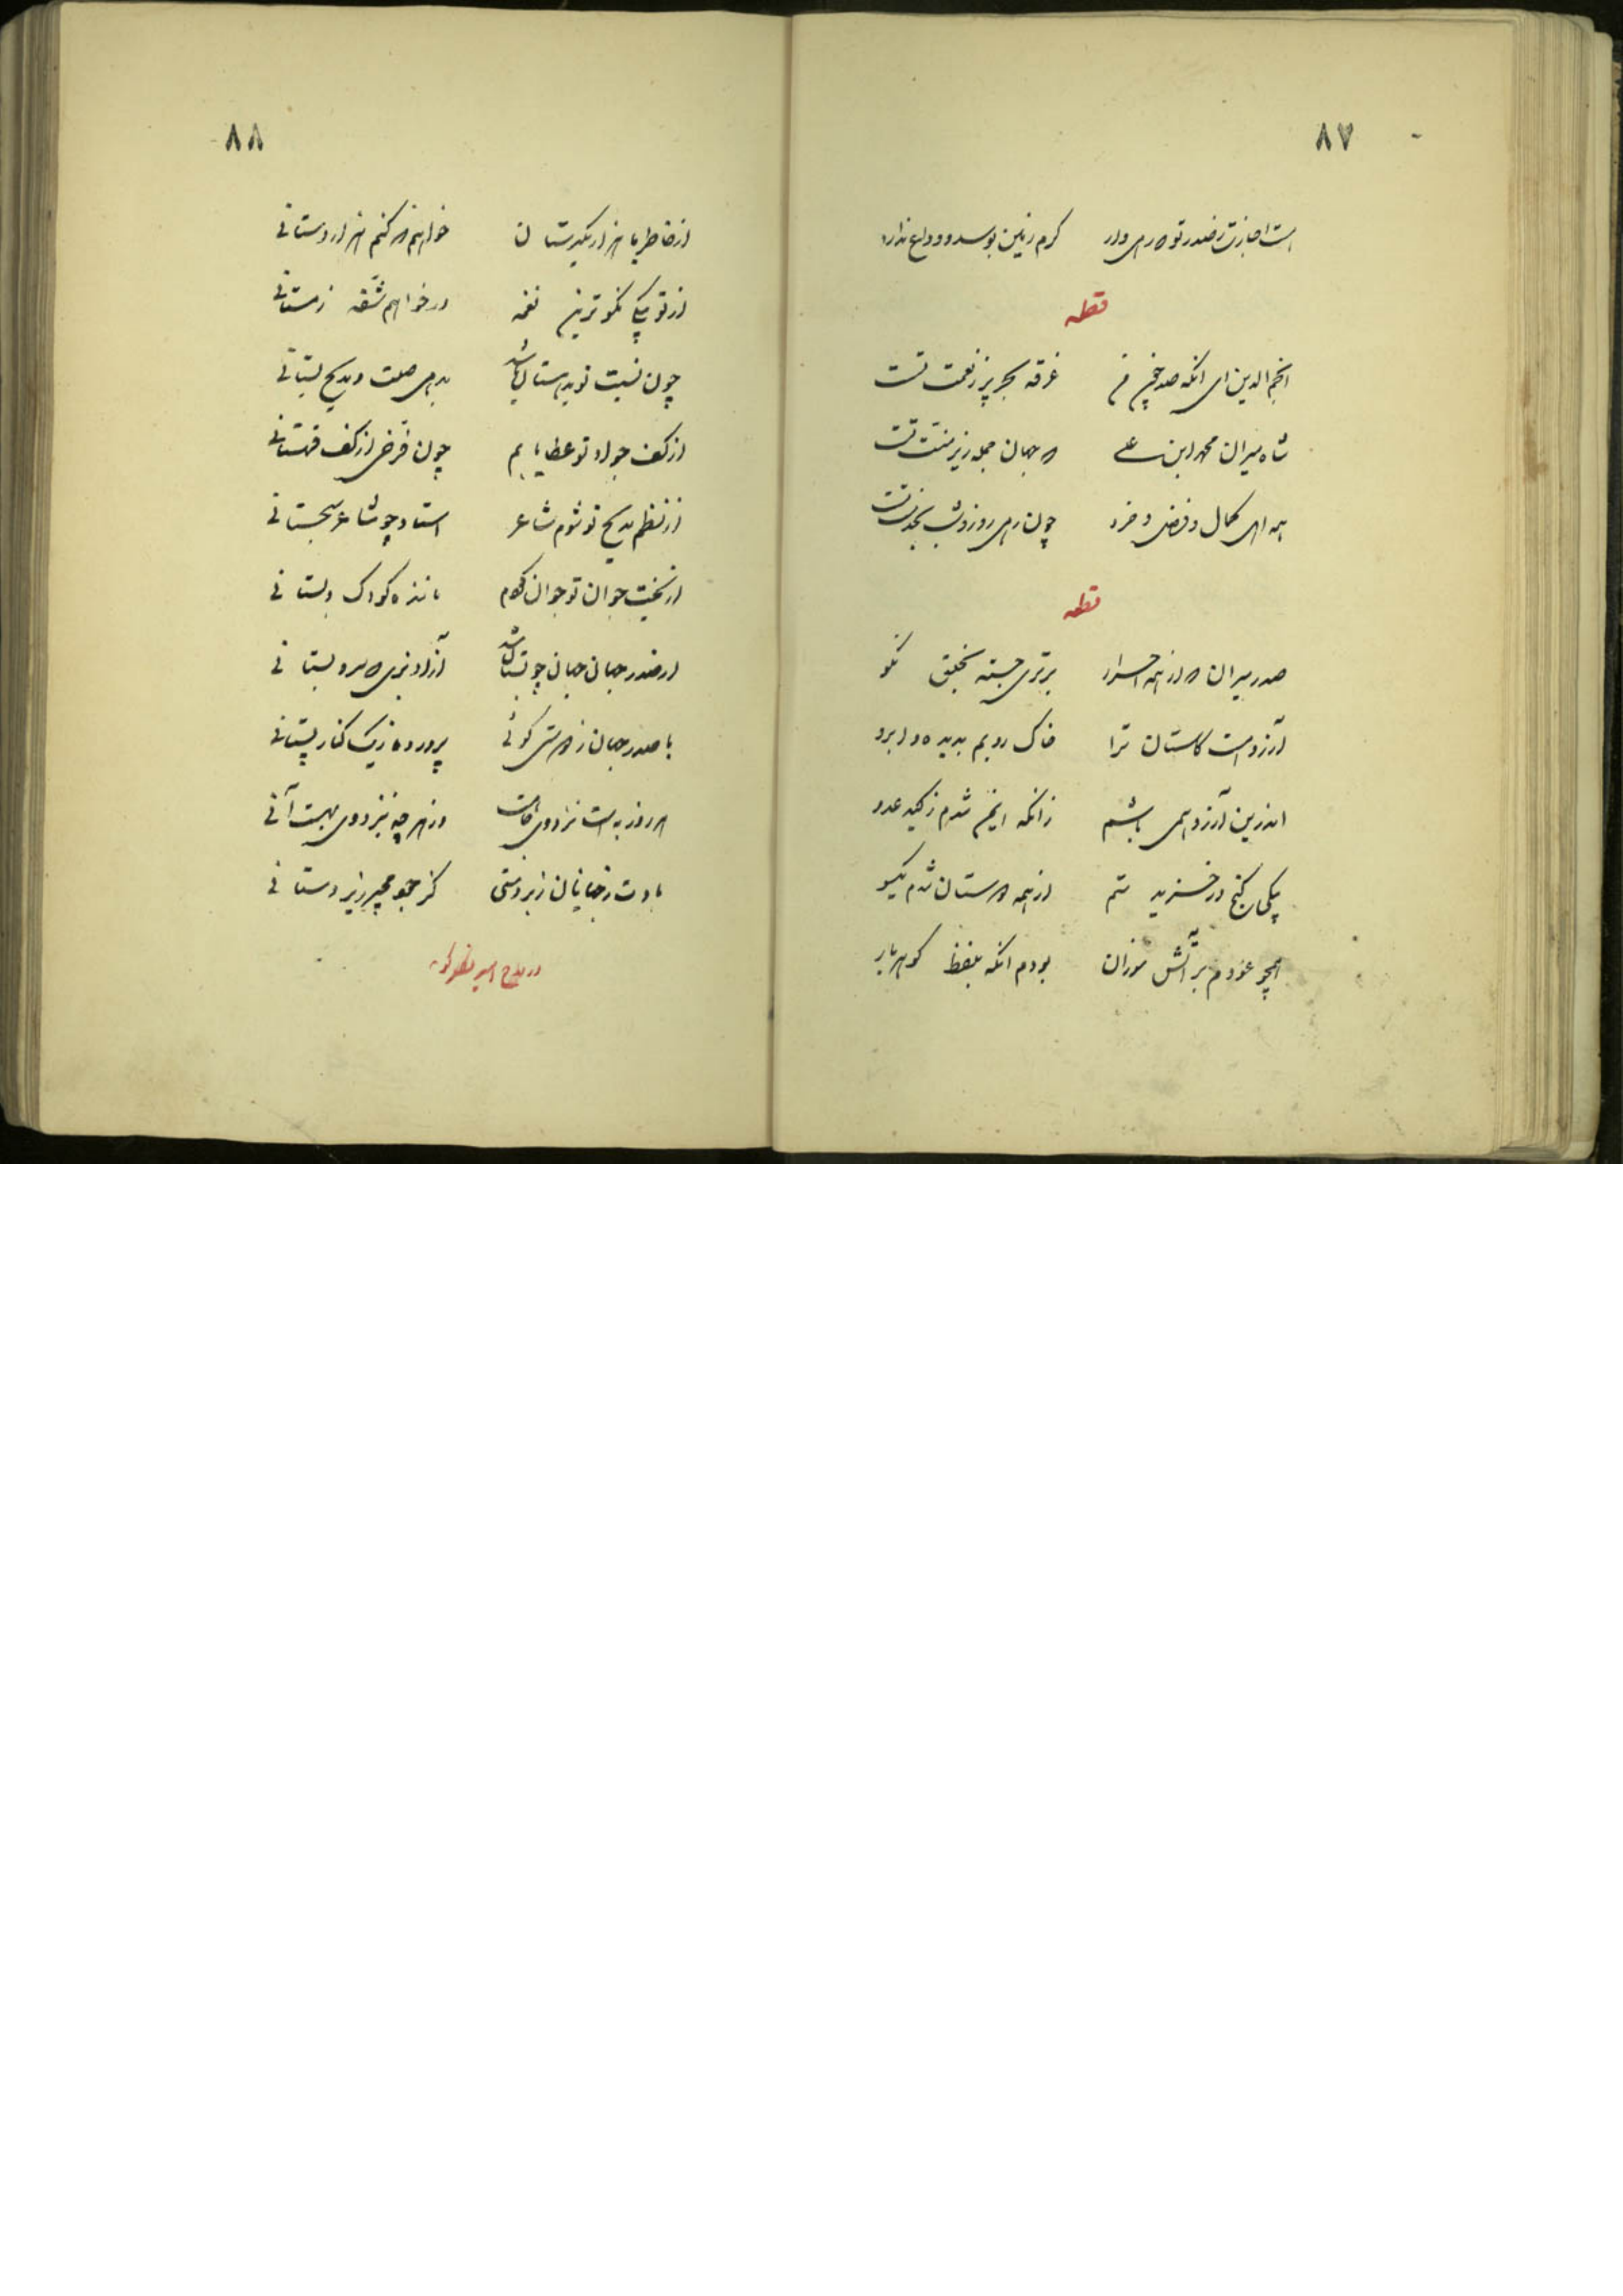 ۸۷
است اجازت ز صدر تو که رهی وار کرم زمین بوسد و وداع ندارد
قطعه
انجم الدین ای آنکه صد چو منی غرقه بحر پر ز نعمت تست
شاه میران محمد ابن علی که جهان جمله زیر منت تست
همه اهل کمال و فضل و خرد چون رهی روز و شب بخدمت تست
قطعه
صدر میران که از همه احرار برتری جسته بخلق نکو
آرزو است کاستان ترا خاک روبم بدیده و ابرو
اندرین آرزو همی باشم زانکه ایمن شدم ز کید عدو
یکی کنج در خزید ستم از همه دوستان شدم یکسو
همچو عود م بر آتش سوزان بودم آنکه بلفظ گوهر بار
۸۸
از خاطر با هزار یکدستان خواهم که کنم هزاردستانی
از تو یکی نکوترین نغمه در خواهم شقه زمستانی
چون نسبت تو بداستان باشد بدهی صلت و مدیح بستانی
از کف جواد تو عطا یابم چون فرخی از کف قهستانی
از نظم مدیح تو شوم شاعر استاد چو شاعر سجستانی
از بخت جوان تو جوان گردم ماننده کودک دبستانی
از صدر جهان جهان چو بستان شد آزاد بزی که سرو بستانی
با صدر جهان ز دوستی گوئی پرورده ز یک کنار پستانی
هر روز به است نزد وی جاهت وز هر چه نبزد وی بهست آنی
بادت ز جهانیان زبردستی کز جود مجیر زیردستانی
در مدح امیر مظفر گوید